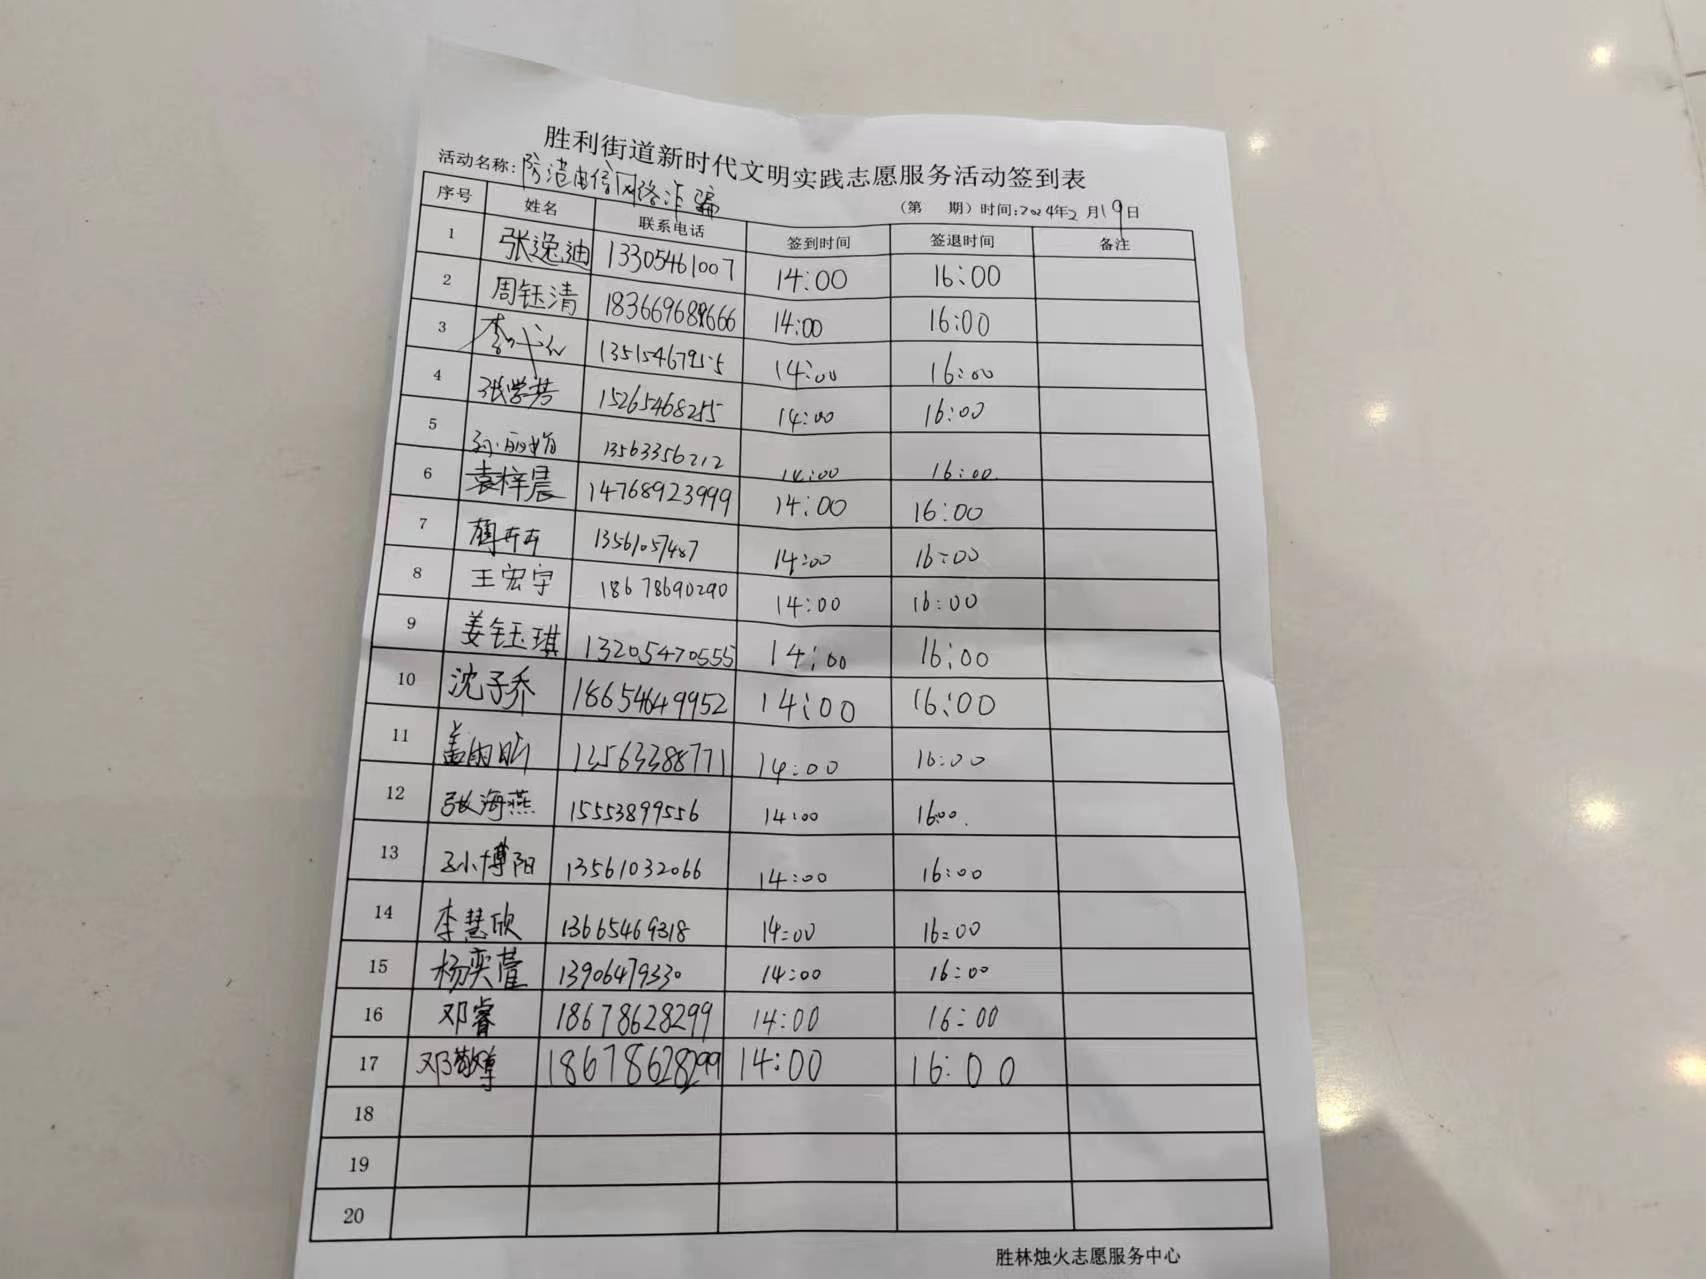 胜利街道新时代文明实践志愿服务活动签到表
活动名称:防范电信网络诈骗
(第 期)时间:2024年2月19日
序号 姓名 联系电话 签到时间 签退时间 备注
1 张逸迪 13305461007 14:00 16:00
2 周钰清 14:00 16:00
3 14:00 16:00
4 张学芳 15265468255 14:00 16:00
5 13563356212 14:00 16:00
6 袁梓晨 14768923999 14:00 16:00
7 13561057487 14:00 16:00
8 王宏宇 18678690290 14:00 16:00
9 姜钰琪 13205470555 14:00 16:00
10 沈子乔 18654649952 14:00 16:00
11 13563388771 14:00 16:00
12 张海燕 15553899556 14:00 16:00.
13 孙博阳 13561032066 14:00 16:00
14 李慧欣 13665469318 14:00 16:00
15 杨奕萱 13906479330 14:00 16:00
16 邓睿 18678628299 14:00 16:00
17 18678628299 14:00 16:00
18
19
20
胜林烛火志愿服务中心